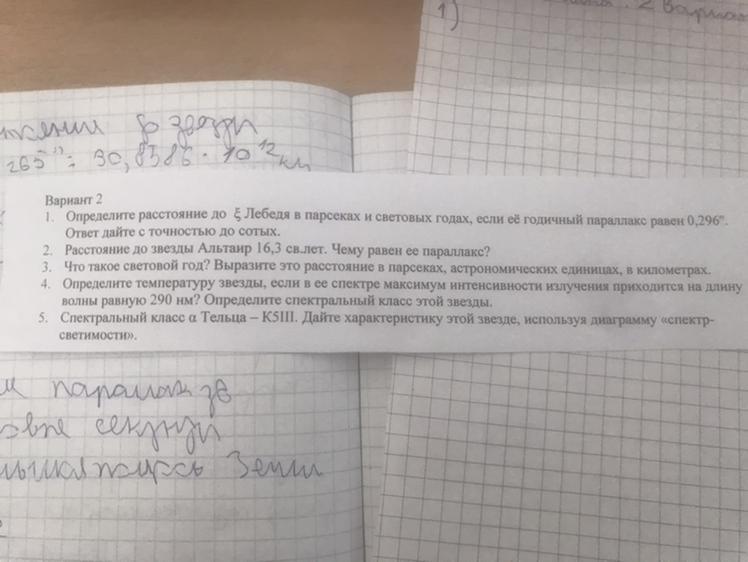 2 Вариан
1)
жении до звезды
265" = 30,8586 · 10¹² км
Вариант 2
1. Определите расстояние до ξ Лебедя в парсеках и световых годах, если её годичный параллакс равен 0,296".
Ответ дайте с точностью до сотых.
2. Расстояние до звезды Альтаир 16,3 св.лет. Чему равен ее параллакс?
3. Что такое световой год? Выразите это расстояние в парсеках, астрономических единицах, в километрах.
4. Определите температуру звезды, если в ее спектре максимум интенсивности излучения приходится на длину
волны равную 290 нм? Определите спектральный класс этой звезды.
5. Спектральный класс α Тельца – К5III. Дайте характеристику этой звезде, используя диаграмму «спектр-
светимости».
секунды
Земли